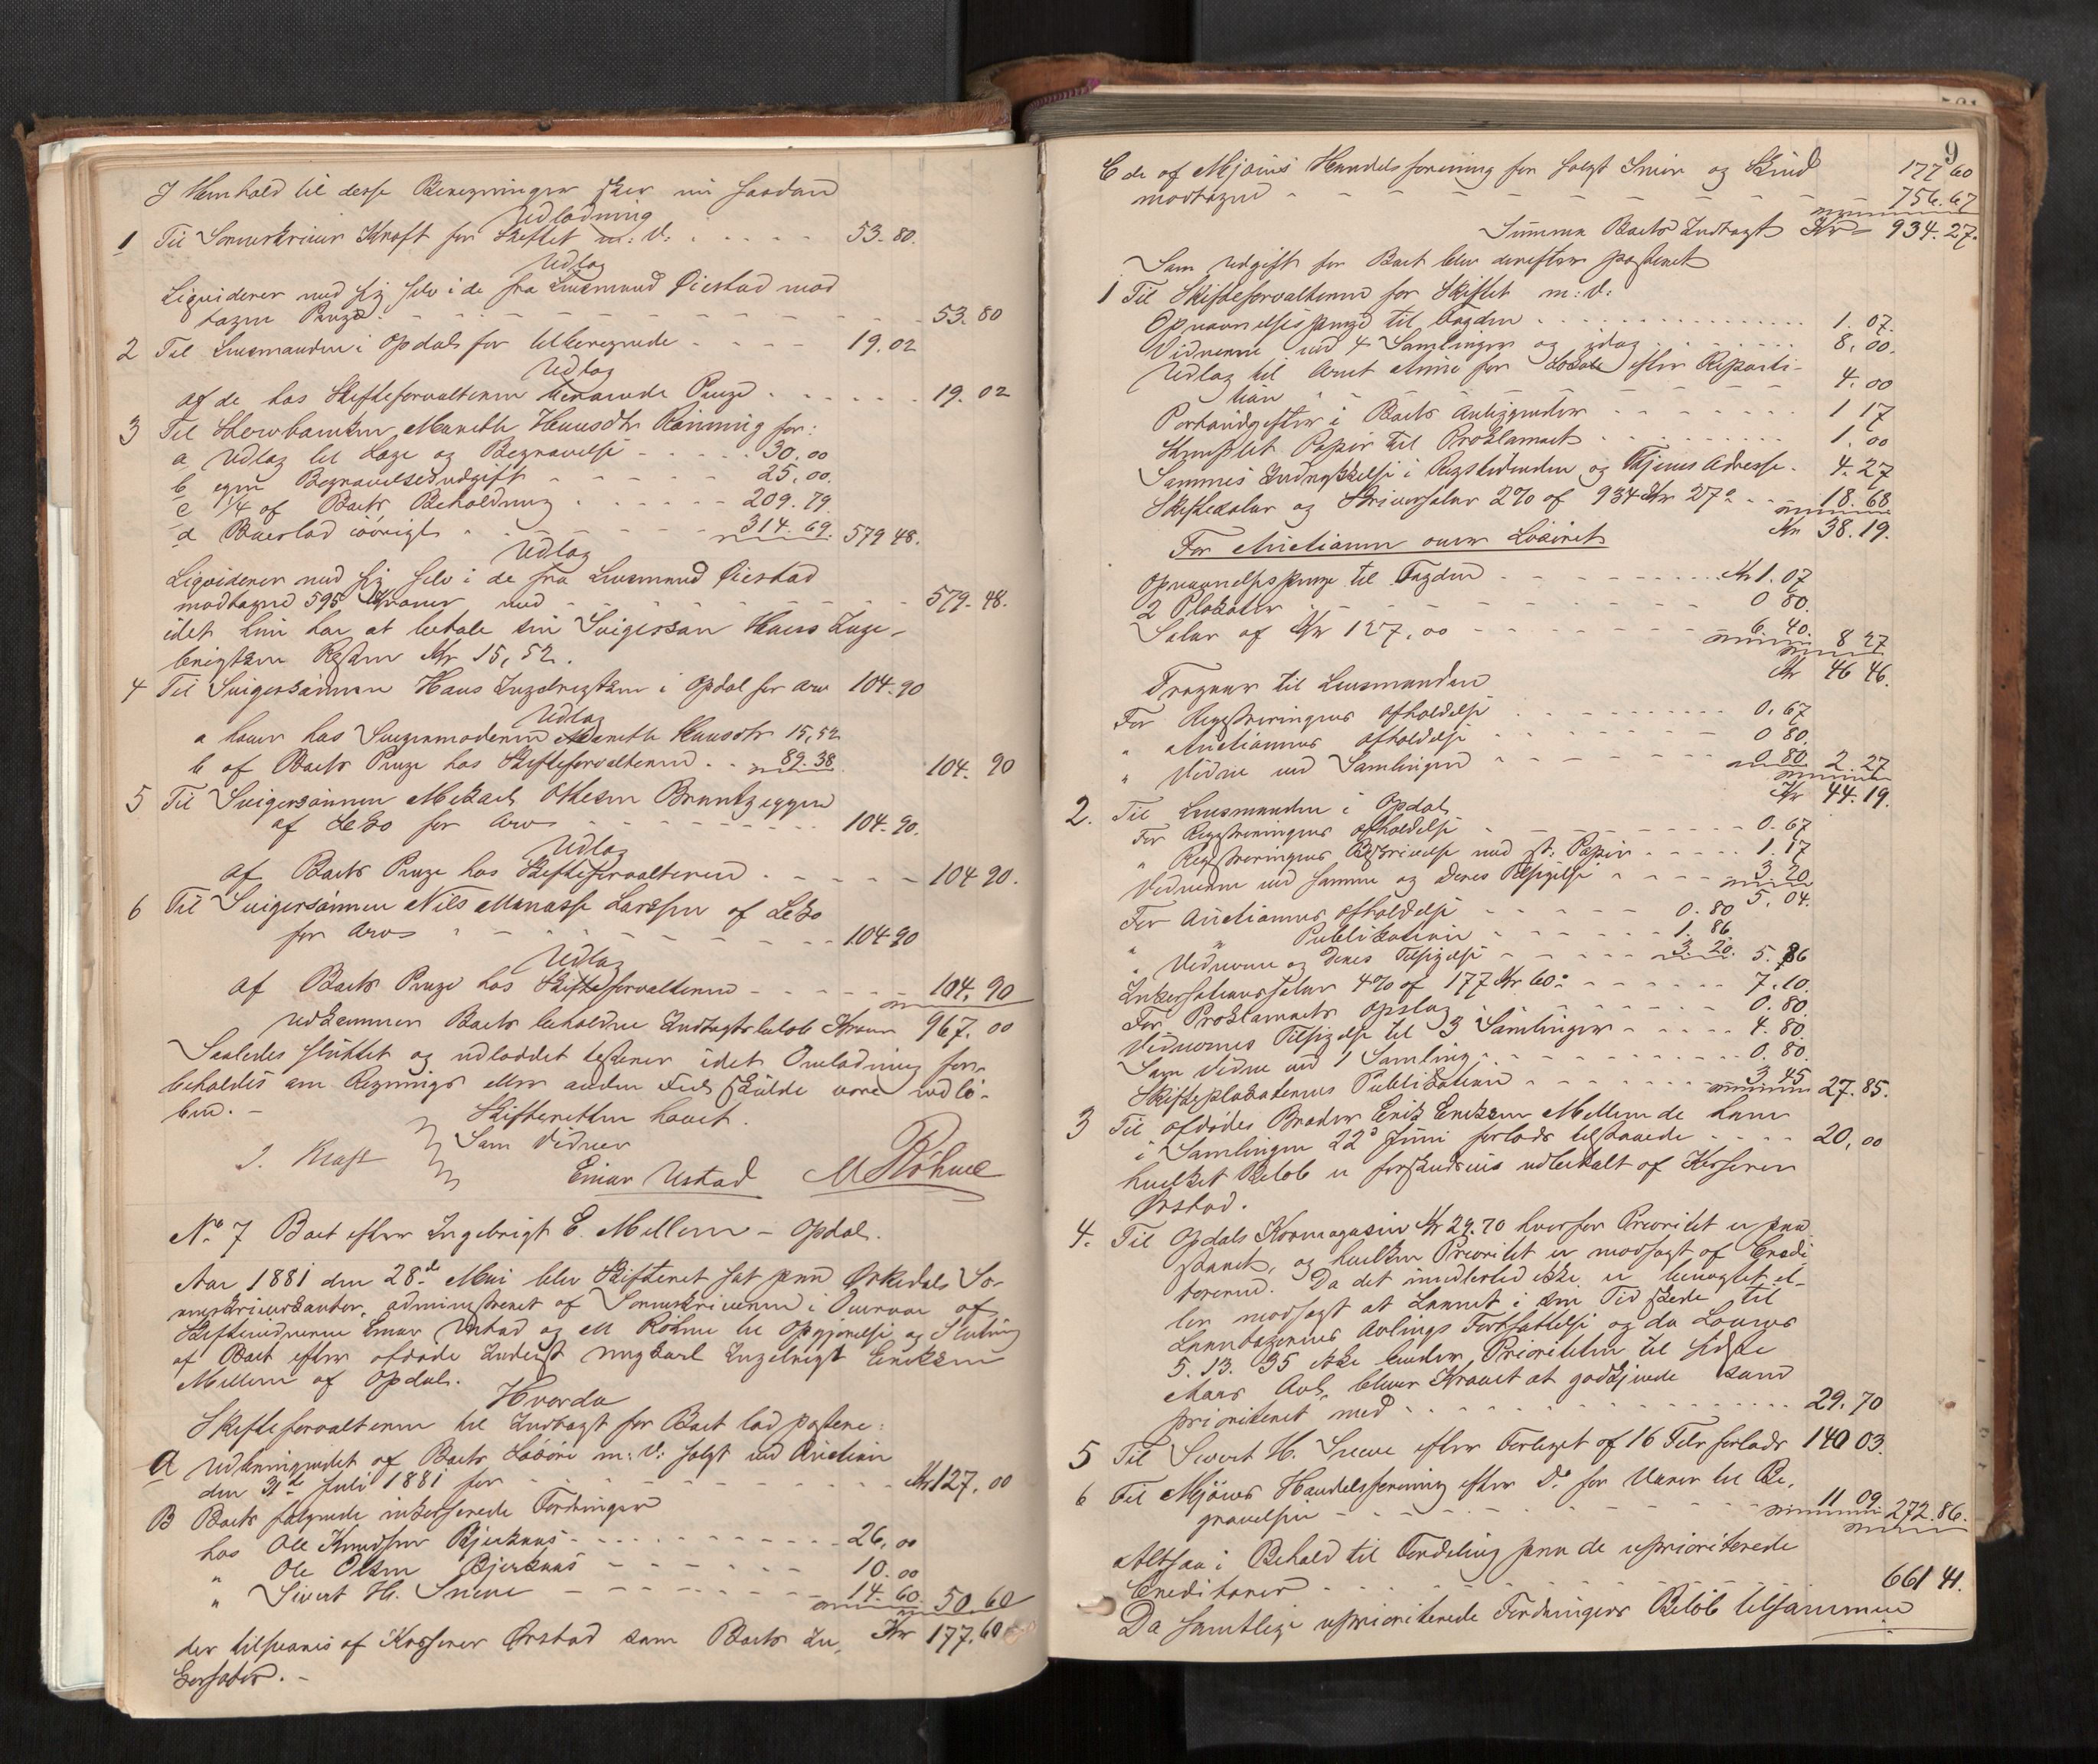 I Henhold til desse Beregninger sker nu saadan
Udlodning
1 Til Sorenskriver Kraft for Skiftet m: v: 53.80.
Udlæg
Liqviderer med sig selv i de fra Lensmand Øiestad mod
tagne Penge. 53.80
2 Til Lensmanden i Opdal for tilberegnede 19.02
Udlæg
af de hos Skifteforvalteren beroende Penge 19.02
3 Til Sterboenken Marethe Hansdtr Rønning for:
a Udlæg til Læge og Begravelse 30.00
b egen Begravelsesudgift 25.00.
c 1/4 af Boets Beholdning 209.79.
d Boeslod iøvrigt 314.69. 579 48.
Udlæg
Liqviderer med sig selv i de fra Lensmand Øiestad
modtagne 595 Kroner med 579.48.
idet hun har at betale sin Svigersøn Hans Inge-
brigtsen Resten Kr 15,52.
4 Til Svigersønnen Hans Ingebrigtsen i Opdal for Arv 104.90
Udlæg
a haver hos Svigermoderen Marethe Hansdtr 15,52
b af Boets Penge hos Skifteforvalteren 89.38 104.90
5 Til Svigersønnen Mikael Olsen Brændeggen
af Leko for Arv 104.90.
Udlæg
af Boets Penge hos Skifteforvalteren 104 90.
6 Til Svigersønnen Nils Manasse Larssen af Leko
for Arv 104 90
Udlæg
af Boets Penge hos Skifteforvalteren 104.90
udkommer Boets beholdne Indtægtsbeløb Kroner 967.00
Saaledes sluttet og udloddet testerer idet Omlodning for-
beholdes om Regnings eller anden Feil skulde være indlø-
ben. -
Skifteretten hævet.
Som Vidner
J. Kraft
Einar Ustad M Röhme
No. 7 Boet efter Ingebrigt E. Mellem - Opdal.
Aar 1881 den 28de Mai blev Skifteret sat paa Orkedals So-
renskriverkontor, administreret af Sorenskriveren i Overvær af
Skiftevidnerne Einar Ustad og M Röhme til Opgjørelse og Slutning
af Boet efter afdøde Inderst ungkarl Ingebrigt Eriksen
Mellem af Opdal.
Hvorda
Skifteforvalteren til Indtægt for Boet lod postere:
A Udbringendet af Boets Løsøre m: v: solgt ved Auction
den 31te Juli 1881 for Kr 127,00
B Boets følgende inkasserede Fordringer
hos Ole Knudsen Bjerknæs 26,00
" Ole Olsen Bjerknæs 10.00
" Sivert H. Sneve 14.60. 50.60
der tilsvares af Kasserer Ørstad som Boets In- Kr 177.60
kassator. -
9
177 60
C de af Mjøens Handelsforening for solgt Smør og Skind
modtagne 756.67
Summa Boets Indtægt Kr 934.27.
Som Udgift for Boet blev derefter posteret
1 Til Skifteforvalteren for Skiftet m: v:
Opnævnelsespenge til Fogden 1.07.
Vidnerne ved 4 Samlinger og idag 8.00.
Udlæg til Arnt Aune for Lokale efter Reparti-
tion 4.00
Portoudgifter i Boets Anliggender 1 17
Stemplet Papir til Proklamaet 1.00
Sammes Indrykkelse i Rigstidenden og Thjems Adresse. 4.27
Skiftesalær og Skriversalær 2% af 934 Kr 27 18.68
Kr 38.19.
For Auctionen over Løsøret
Opnævnelsespenge til Fogden Kr 1.07
2 Plakater 0 80.
Salær af Kr 127.00 6.40. 8 27
Kr 46 46.
Fragaar til Lensmanden
For Registreringens Afholdelse 0.67
" Auctionens Afholdelse 0 80.
" Vidne ved Samlingen 0 80 2.27
Kr 44.19.
2. Til Lensmanden i Opdal
For Registreringens Afholdelse 0.67
" Registreringens Beskrivelse med st: Papir 1.17
Vidnerne ved samme og deres Tilsigelse 3 20
5.04.
For Auctionens Afholdelse 0.80
" " Publikation 1.86.
" Vidnerne og deres Tilsigelse 3.20. 5.86
Inkassationssalær 4% af 177 Kr 60 7.10.
For Proklamaets Opslag 0.80.
Vidnernes Tilsigelse til 3 Samlinger 4.80.
Som Vidne ved 1 Samling 0.80.
Skifteplakatens Publikation 3 45 27.85.
3 Til afdødes Broder Erik Eriksen Mellem de ham
i Samlingen 22de Juni forlods tilstaaede 20,00
hvilket Beløb er forskudsvis udbetalt af Kasserer
Ørstad.
4. Til Opdals Kornmagasin Kr 29.70 hvorfor Prioritet er paa-
staaet, og hvilken Prioritet er modsagt af Credi-
torerne. Da det imidlertid ikke er benægtet el-
ler modsagt at Laanet i sin Tid skede til
Laantagerens Avlings Fortsættelse og da Lovens
5. 13. 35 ikke binder Prioriteten til sidste
Aars Avl, bliver Kravet at godkjende som
prioriteret med 29.70
5 Til Sivert H. Sneve efter Forliget af 16 Febr forlods 140 03.
6 Til Mjøens Handelsforening efter Do for Varer til Be-
gravelsen 11 09. 272.86.
Altsaa i Behold til Fordeling paa de uprioriterede
Creditorer 661 41.
Da samtlige uprioriterede Fordringers Beløb tilsammen